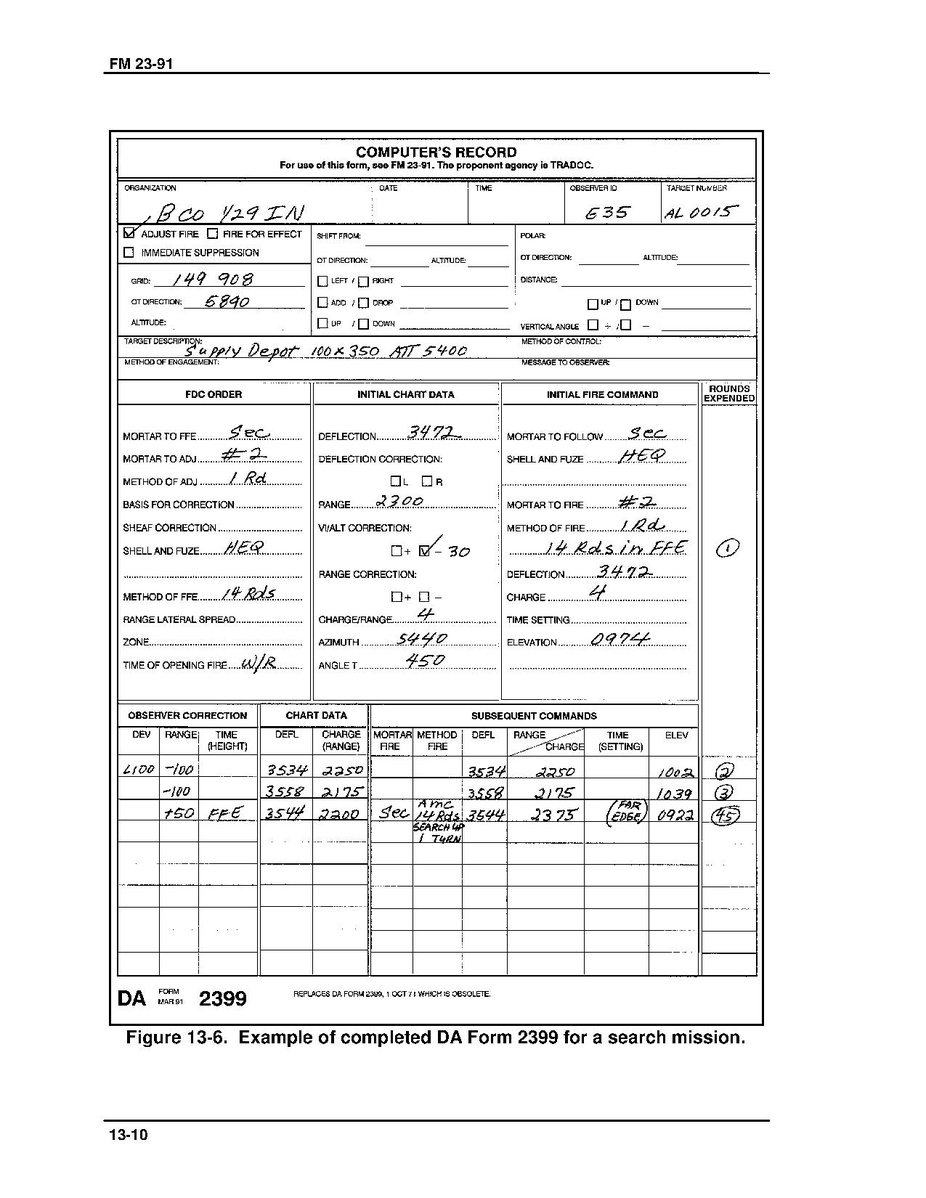 FM 23-91
COMPUTER'S RECORD
For use of this form, see FM 23-91. The proponent agency is TRADOC.
ORGANIZATION DATE TIME OBSERVER ID TARGET NUMBER
B CO 1/29 IN E35 AL 0015
ADJUST FIRE FIRE FOR EFFECT SHIFT FROM: POLAR:
IMMEDIATE SUPPRESSION OT DIRECTION: ALTITUDE: OT DIRECTION: ALTITUDE:
GRID: 149 908 LEFT / RIGHT DISTANCE:
OT DIRECTION: 5890 ADD / DROP UP / DOWN
ALTITUDE: UP / DOWN VERTICAL ANGLE + / -
TARGET DESCRIPTION: Supply Depot 100 x 350 ATT 5400 METHOD OF CONTROL:
METHOD OF ENGAGEMENT: MESSAGE TO OBSERVER:
FDC ORDER INITIAL CHART DATA INITIAL FIRE COMMAND ROUNDS EXPENDED
MORTAR TO FFE Sec DEFLECTION 3472 MORTAR TO FOLLOW Sec
MORTAR TO ADJ #2 DEFLECTION CORRECTION: SHELL AND FUZE HEQ
METHOD OF ADJ 1 Rd L R
BASIS FOR CORRECTION RANGE 2300 MORTAR TO FIRE #2
SHEAF CORRECTION VI/ALT CORRECTION: METHOD OF FIRE 1 Rd
SHELL AND FUZE HEQ + - 30 14 Rds in FFE 1
RANGE CORRECTION: DEFLECTION 3472
METHOD OF FFE 14 Rds + - CHARGE 4
RANGE LATERAL SPREAD CHARGE/RANGE 4 TIME SETTING
ZONE AZIMUTH 5440 ELEVATION 0974
TIME OF OPENING FIRE W/R ANGLE T 450
OBSERVER CORRECTION CHART DATA SUBSEQUENT COMMANDS
DEV RANGE TIME (HEIGHT) DEFL CHARGE (RANGE) MORTAR FIRE METHOD FIRE DEFL RANGE CHARGE TIME (SETTING) ELEV
L100 -100 3534 2250 3534 2250 1002 2
-100 3558 2175 3558 2175 1039 3
+50 FFE 3544 2200 Sec AMC 14 Rds SEARCH UP 1 TURN 3544 2375 (FAR EDGE) 0922 45
DA FORM MAR 91 2399 REPLACES DA FORM 2399, 1 OCT 71 WHICH IS OBSOLETE.
Figure 13-6. Example of completed DA Form 2399 for a search mission.
13-10